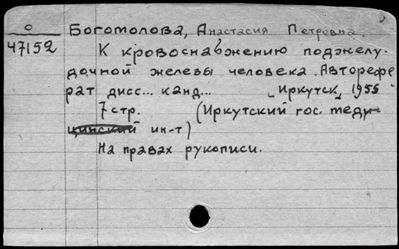 О Богомолова, Анастасия Петровна.
47152 К кровоснабжению поджелу-
дочной железы человека. Авторефе
рат дисс... канд... Иркутск, 1955
7 стр. (Иркутский гос. меди-
цинский ин-т)
На правах рукописи.